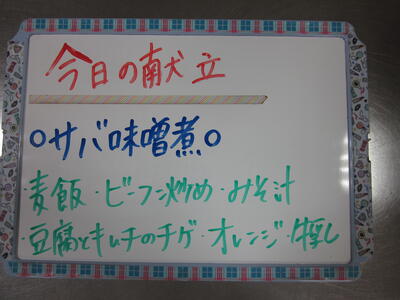 今日の献立
○サバ味噌煮○
・麦飯・ビーフン炒め・みそ汁
・豆腐とキムチのチゲ・オレンジ・